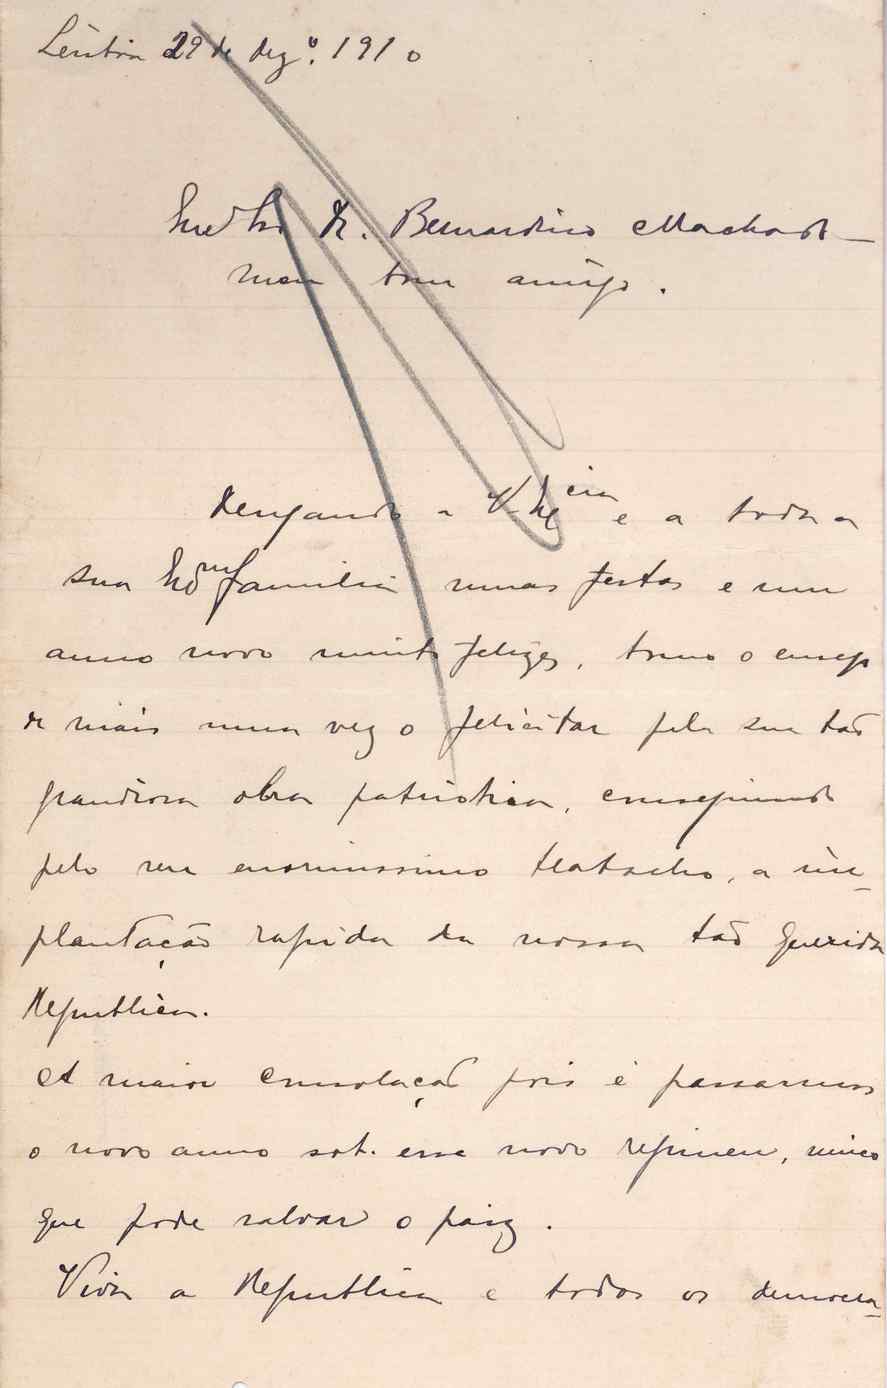 Leiria 29 de dezº. 1910
Exmo Sr. Dr. Bernardino Machado
meu bom amigo.
Desejando a V. Excia e a toda a
sua Exma familia umas festas e um
anno novo muito felizes, tomo o ensejo
de mais uma vez o felicitar pela sua tão
grandiosa obra patriotica, conseguindo
pelo seu enormissimo trabalho, a im-
plantação rapida da nossa tão querida
Republica.
A maior consolação pois é passarmos
o novo anno sob. esse novo regimen, unico
que pode salvar o paiz.
Viva a Republica e todos os democra-